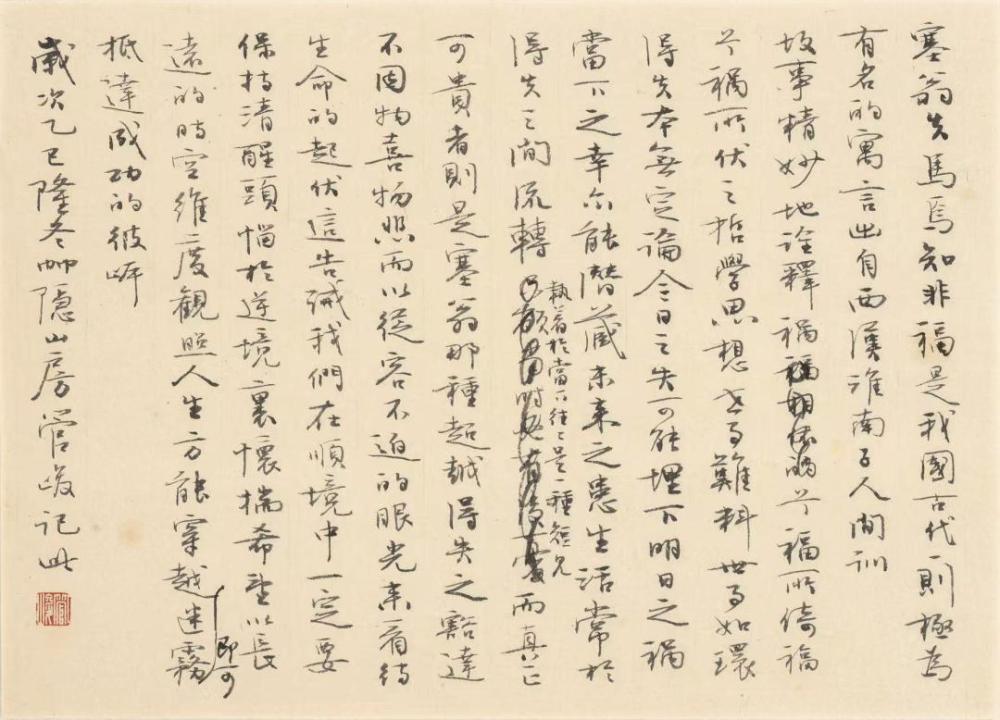 塞翁失馬焉知非福是我國古代一則極為
有名的寓言出自西漢淮南子人間訓
故事精妙地詮釋禍兮福所倚福
兮禍所伏之哲學思想世事難料世事如環
得失本無定論今日之失可能埋下明日之福
當下之幸亦能潛藏未來之患生活常於
得失之間流轉執著於當下往往是一種短見而真正
可貴者則是塞翁那種超越得失之豁達
不因物喜物悲而以從容不迫的眼光來看待
生命的起伏這告誡我們在順境中一定要
保持清醒頭惱於逆境裏懷揣希望以長
遠的時空維度觀照人生方能穿越迷霧即可
抵達成功的彼岸
歲次乙巳隆冬師隱山房管峻記此
管峻